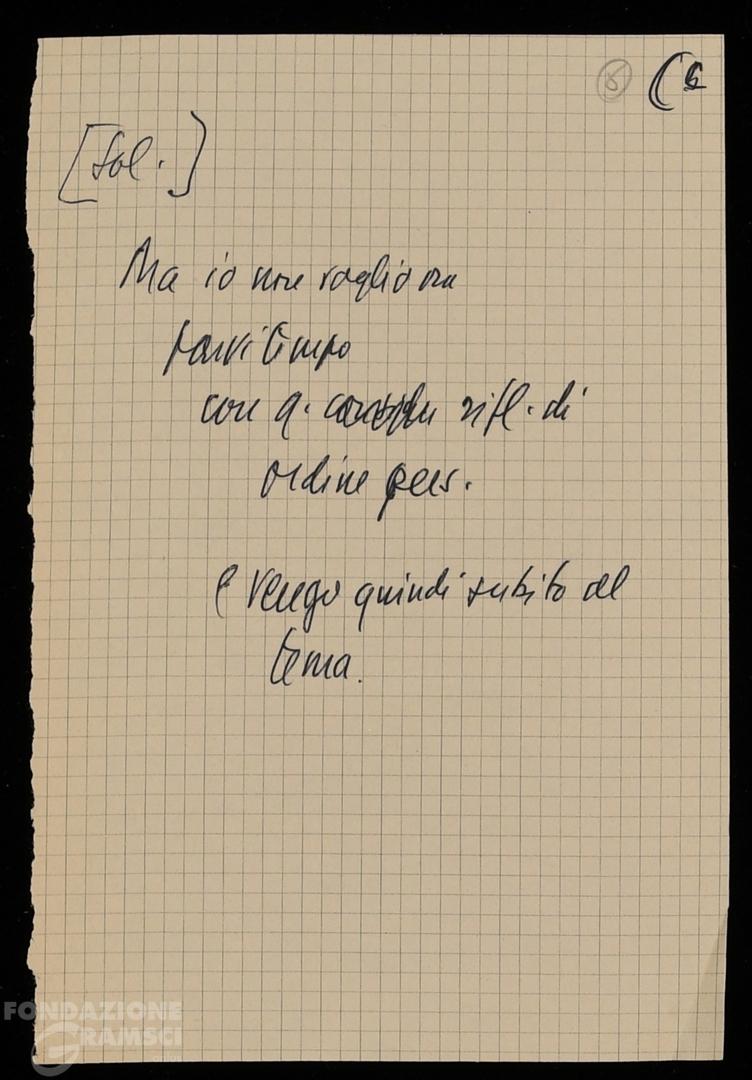 6 (6
[Sol.]
Ma io non voglio ora
farvi tempo
con q. rifl. di
ordine pers.
e vengo quindi subito al
tema.
FONDAZIONE
GRAMSCI